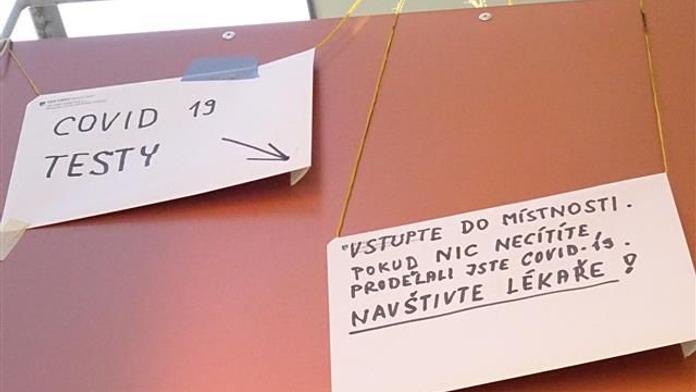 COVID 19
TESTY
VSTUPTE DO MÍSTNOSTI.
POKUD NIC NECÍTÍTE,
PRODĚLALI JSTE COVID-19.
NAVŠTIVTE LÉKAŘE!